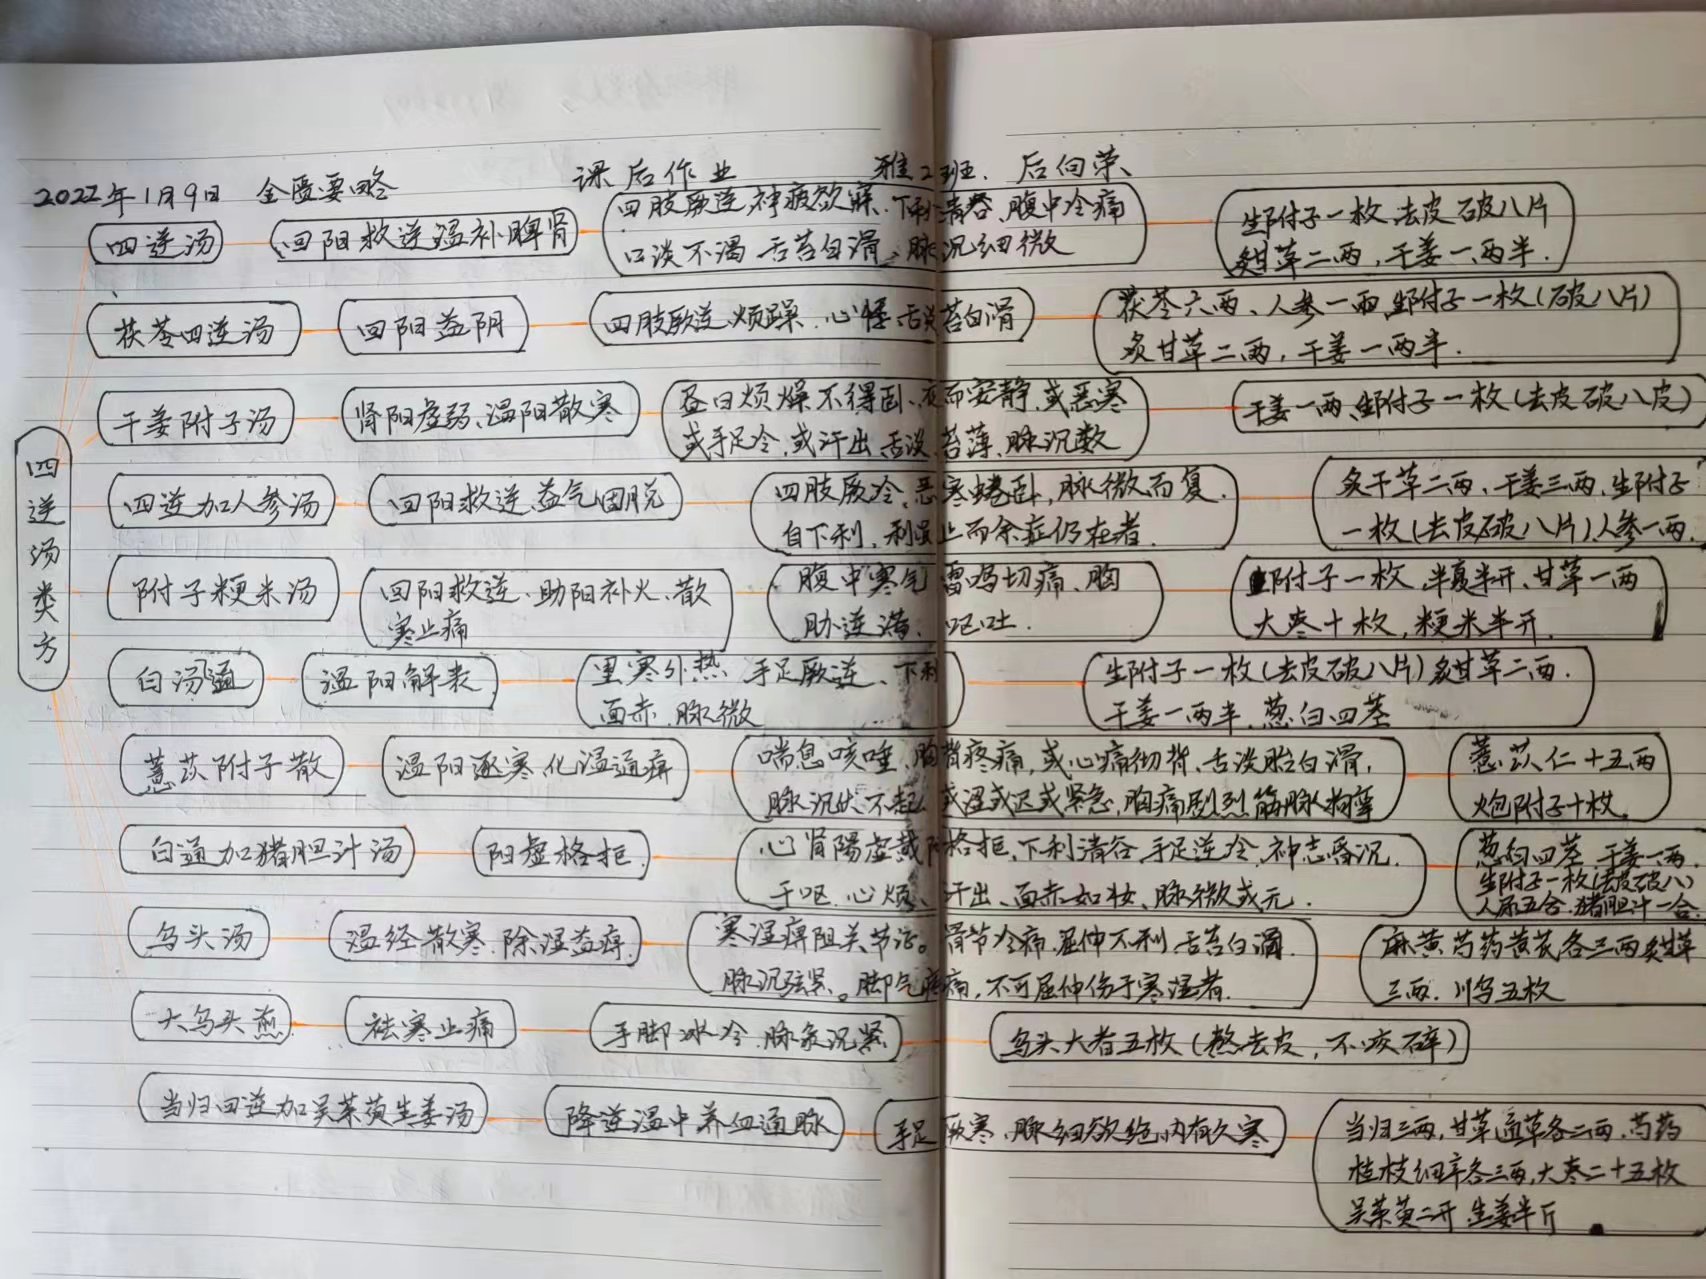 2022年1月9日 金匮要略 课后作业 雅2班. 后向荣
四逆汤类方
四逆汤
回阳救逆温补脾肾
四肢厥逆神疲欲寐.下利清谷、腹中冷痛
口淡不渴 舌苔白滑、脉沉细微
生附子一枚去皮破八片
炙甘草二两,干姜一两半.
茯苓四逆汤
回阳益阴
四肢厥逆烦躁、心悸、舌淡苔白滑
茯苓六两、人参一两、生附子一枚(破八片)
炙甘草二两,干姜一两半.
干姜附子汤
肾阳虚弱、温阳散寒
昼日烦燥不得卧、夜而安静,或恶寒
或手足冷,或汗出、舌淡、苔薄、脉沉数
干姜一两、生附子一枚(去皮破八皮)
四逆加人参汤
回阳救逆、益气固脱
四肢厥冷、恶寒蜷卧,脉微而复.
自下利,利虽止而余症仍在者.
炙干草二两、干姜三两、生附子
一枚(去皮破八片)人参一两.
附子粳米汤
回阳救逆、助阳补火、散
寒止痛
腹中寒气 雷鸣切痛、胸
胁逆满、呕吐.
附子一枚 半夏半开、甘草一两
大枣十枚,粳米半开.
白汤通
温阳解表
里寒外热 手足厥逆、下利
面赤、脉微
生附子一枚(去皮破八片)炙甘草二两.
干姜一两半、葱白四茎
薏苡附子散
温阳逐寒化湿通痹
喘息咳唾、胸背疼痛,或心痛彻背、舌淡胎白滑,
脉沉伏不起 或涩或迟或紧急,胸痛剧烈筋脉拘挛
薏苡仁十五两
炮附子十枚
白通加猪胆汁汤
阳虚格拒
心肾陽虚戴阳格拒、下利清谷、手足逆冷、神志昏沉.
干呕、心烦、汗出、面赤如妆、脉微或无.
葱白四茎 干姜一两.
生附子一枚(去皮破八)
人尿五合、猪胆汁一合
乌头汤
温经散寒、除湿益痹
寒湿痹阻关节证。骨节冷痛、屈伸不利、舌苔白滑.
脉沉弦紧。脚气疼痛,不可屈伸伤于寒湿者.
麻黄芍药黄芪各三两炙甘草
三两.川乌五枚
大乌头煎
祛寒止痛
手脚冰冷、脉象沉紧
乌头大者五枚(熬去皮,不㕮碎)
当归四逆加吴茱萸生姜汤
降逆温中养血通脉
手足厥寒、脉细欲绝、内有久寒
当归三两,甘草通草各二两、芍药
桂枝细辛各三两,大枣二十五枚
吴茱萸二开 生姜半斤